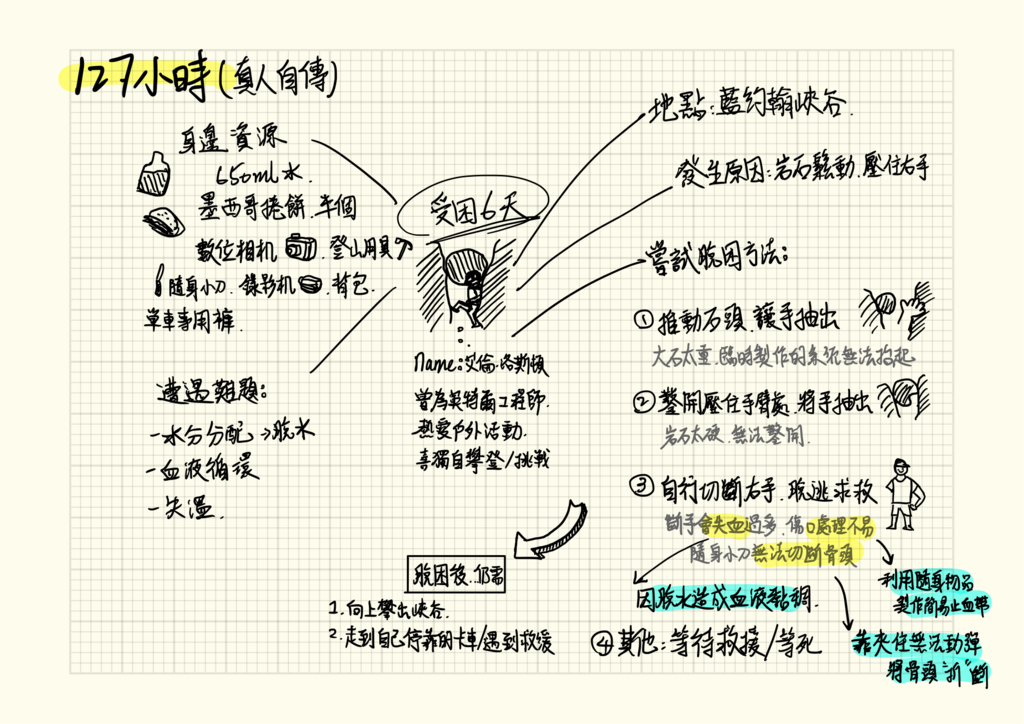 127小時(真人自傳)
身邊資源
650ml水.
墨西哥捲餅.半個
數位相机 登山用具
隨身小刀.錄影机 背包.
單車專用褲.
遭遇難題:
-水分分配→脫水
-血液循環
-失溫.
受困6天
Name:艾倫·洛斯頓
曾為英特爾工程師.
熱愛戶外活動.
喜獨自攀登/挑戰
地點:藍約翰峽谷.
發生原因:岩石鬆動.壓住右手
嘗試脫困方法:
①推動石頭.讓手抽出
大石太重.臨時製作的系統無法拉起
②鑿開壓住手臂處.將手抽出
岩石太硬.無法鑿開.
③自行切斷右手.脫逃求救
斷手會失血過多.傷口處理不易
隨身小刀無法切斷骨頭
因脫水造成血液黏稠.
利用隨身物品
製作簡易止血帶
靠夾住無法動彈
將骨頭"折"斷
④其他:等待救援/等死
脫困後.仍需
1.向上攀出峽谷.
2.走到自己停靠的卡車/遇到救援